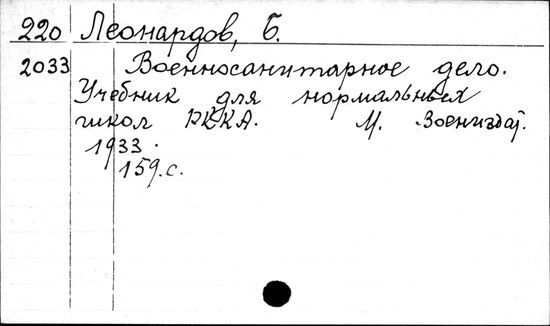 220 Леонардов, Б.
2033 Военносанитарное дело.
Учебник для нормальных
школ РККА. М. Воениздат.
1933.
159.с.